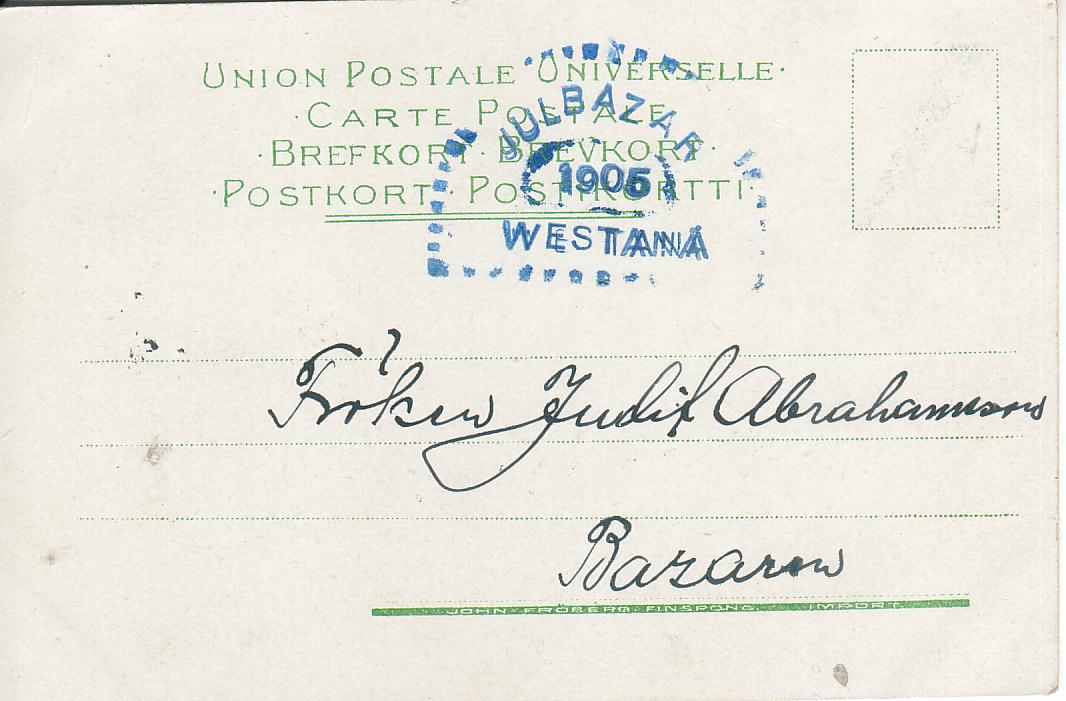 UNION POSTALE UNIVERSELLE·
·CARTE POSTALE
·BREFKORT· BREVKORT·
·POSTKORT· POSTIKORTTI·
JULBAZAR
1905
WESTANÅ
Fröken Judif Abrahamson
Bazaren
JOHN FRÖBERG. FINSPONG. IMPORT.